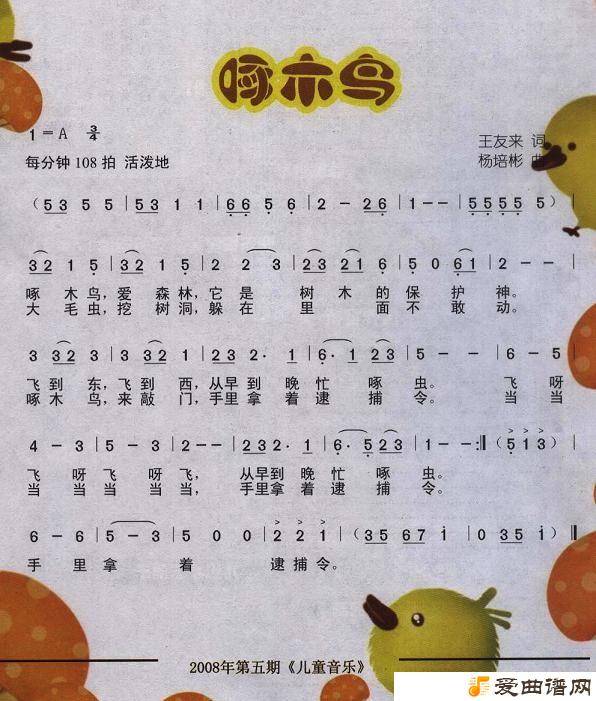 啄木鸟
1=A 3/4
王友来 词
每分钟 108 拍 活泼地
杨培彬 曲
(53 5 5 | 53 1 1 | 66 5 6 | 2 - 26 | 1 - - | 55 55 5) |
32 1 5 | 32 1 5 | 2 2 3 | 23 21 6 | 5 0 61 | 2 - - |
啄 木 鸟，爱 森 林，它 是 树 木 的 保 护 神。
大 毛 虫，挖 树 洞，躲 在 里 面 不 敢 动。
3 3 32 | 3 3 32 | 232· 1 | 6· 1 23 | 5 - - | 6 - 5 |
飞 到 东，飞 到 西，从 早 到 晚 忙 啄 虫。 飞 呀
啄 木 鸟，来 敲 门，手 里 拿 着 逮 捕 令。 当 当
4 - 3 | 5 - 3 | 2 - - | 232· 1 | 6· 523 | 1 - - :‖ (5 1 3) |
飞 呀 飞 呀 飞， 从 早 到 晚 忙 啄 虫。
当 当 当 当 当， 手 里 拿 着 逮 捕 令。
6 - 6 | 5 - 3 | 5 0 0 | 2 2 1 | (35 67 i | 0 35 i) ‖
手 里 拿 着 逮 捕 令。
2008年第五期《儿童音乐》
爱曲谱网